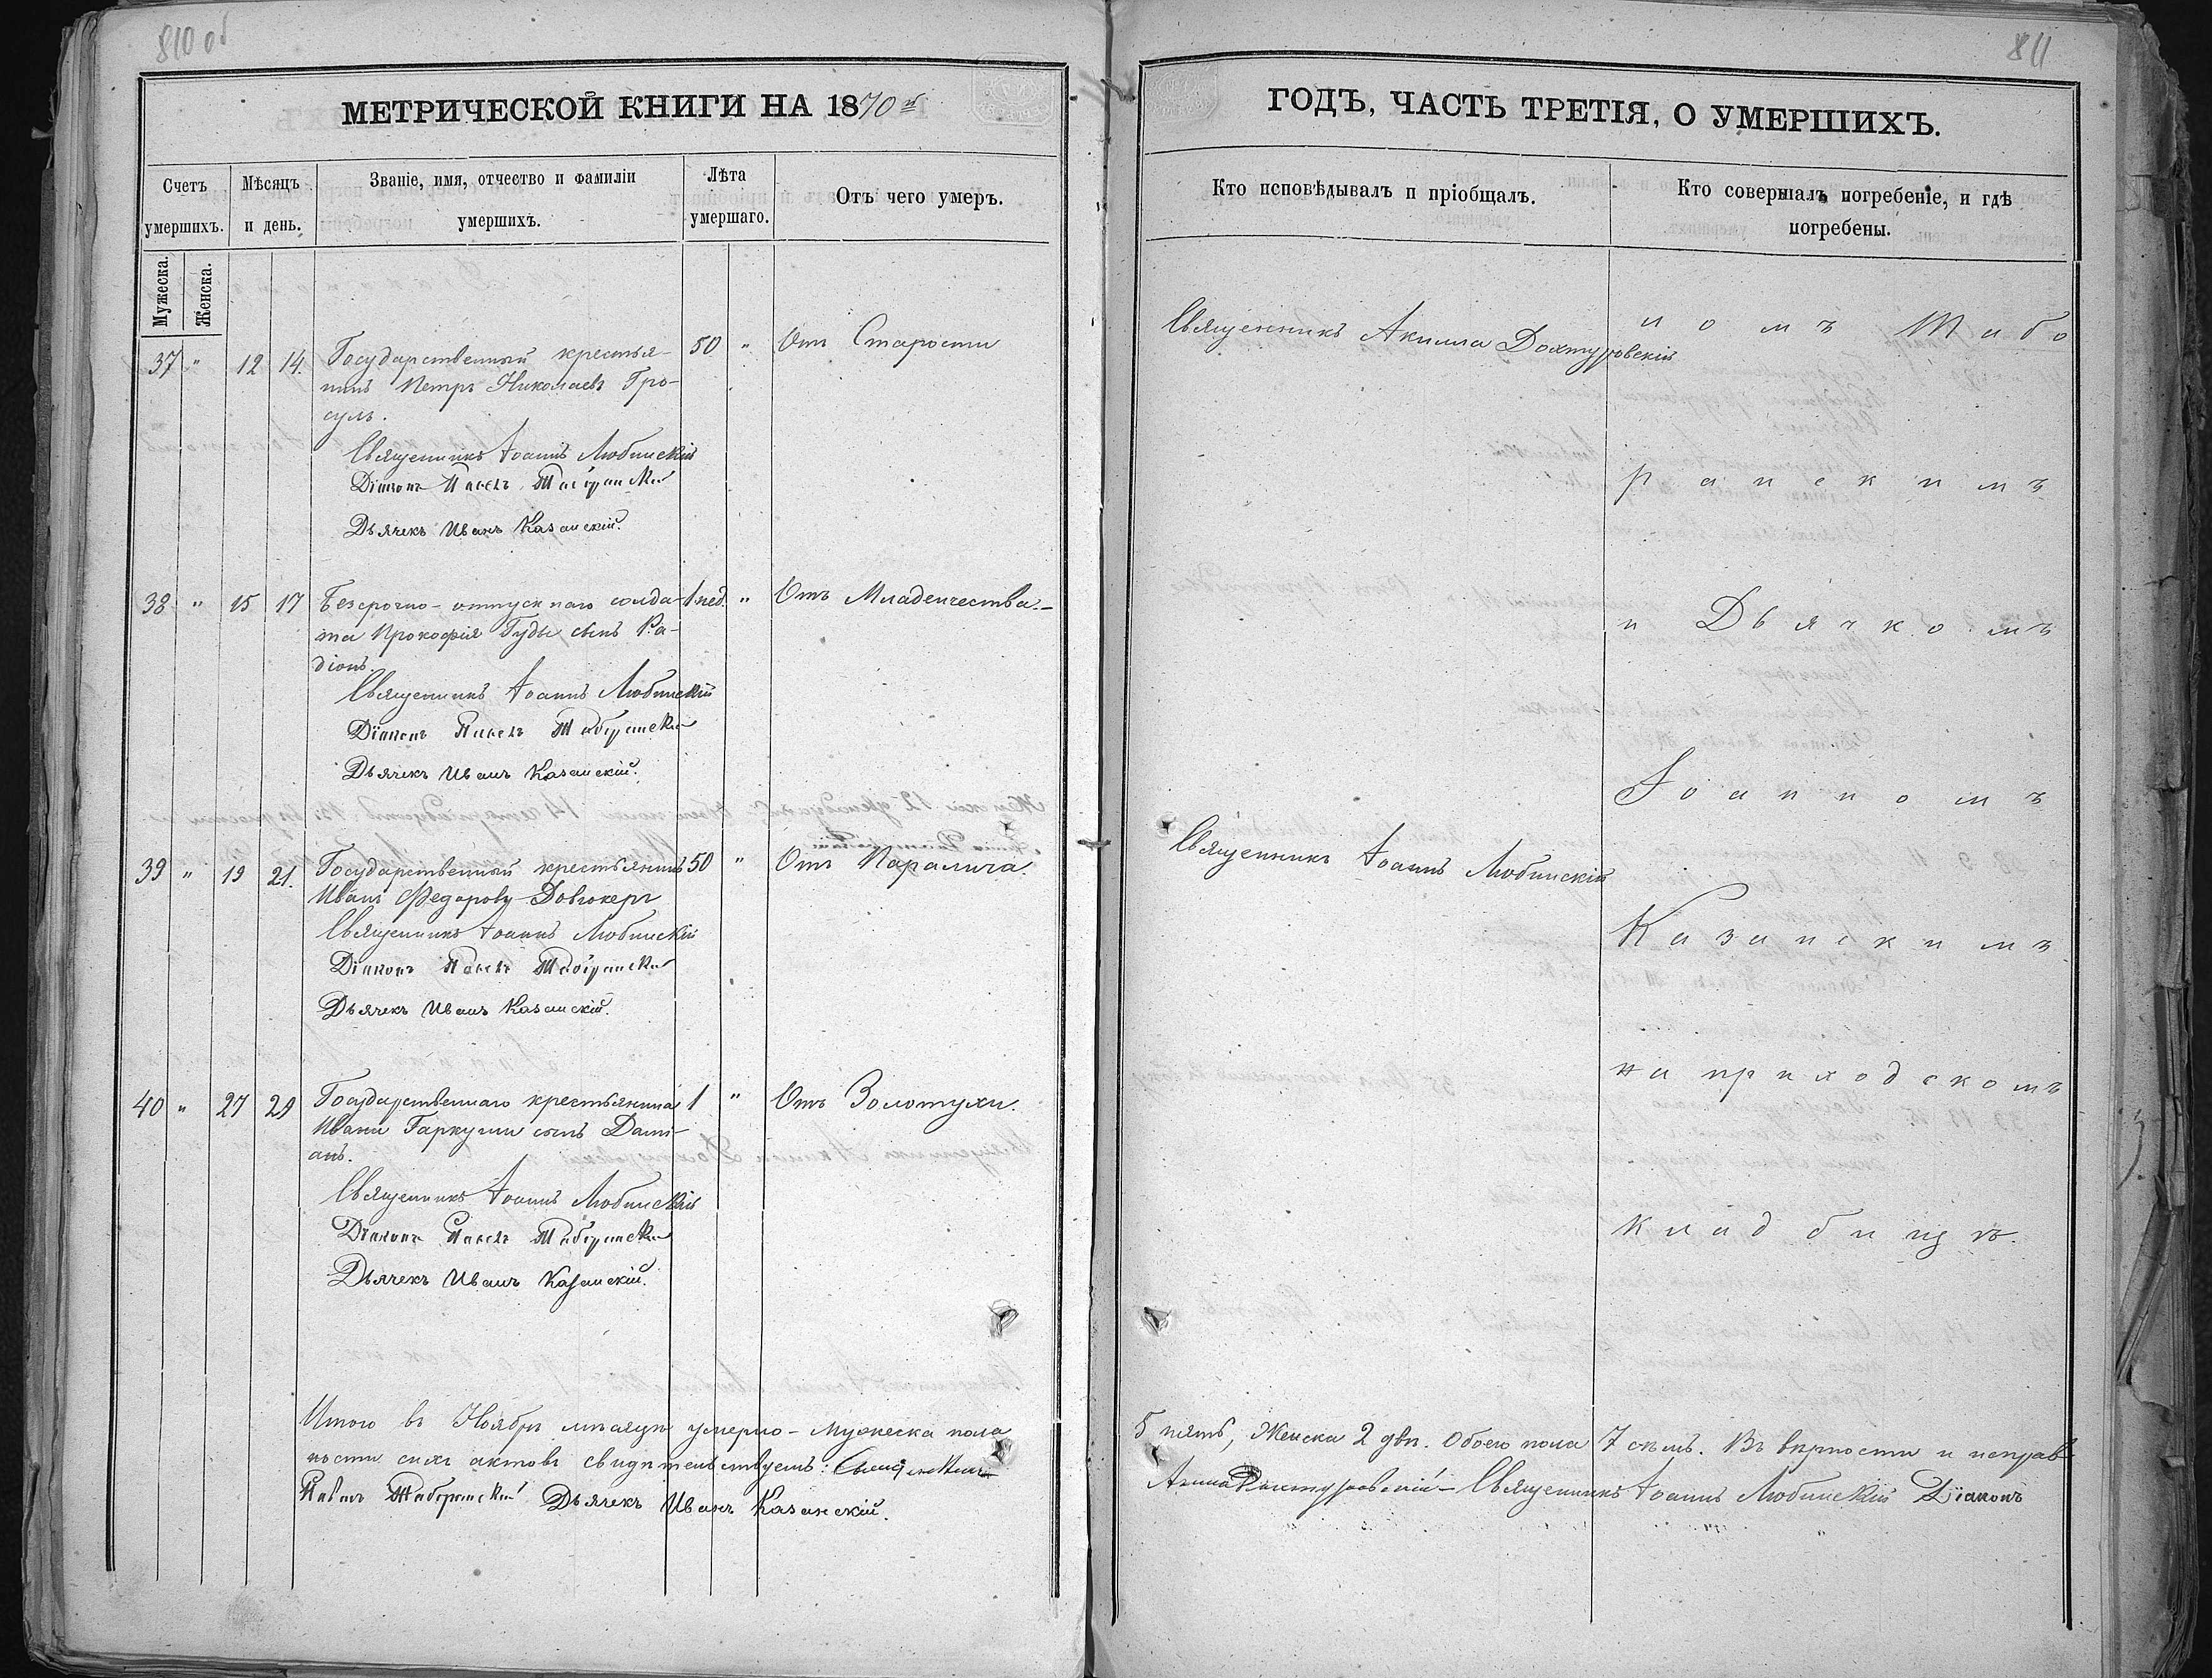 810 об
МЕТРИЧЕСКОЙ КНИГИ НА 1870 й
Счетъ умершихъ.
Мѣсяцъ и день.
Званіе, имя, отчество и фамиліи умершихъ.
Лѣта умершаго.
Отъ чего умеръ.
Мужеска.
Женска.
37 " 12 14. Государственный крестья- 50 " Отъ Старости
нинъ Петръ Николаевъ Гро-
сулъ.
Священникъ Іоаннъ Любинскій
Діаконъ Павелъ Таборанскій
Дьячекъ Иванъ Казанскій.
38 " 15 17 Безсрочно-отпускнаго солда- 1 нед. " Отъ Младенчества.-
та Прокофія Гуды сынъ Ра-
діонъ.
Священникъ Іоаннъ Любинскій
Діаконъ Павелъ Таборанскій
Дьячекъ Иванъ Казанскій.
39 " 19 21. Государственный крестьянинъ 50 " Отъ Паралича.
Иванъ Федоровъ Довгокеръ
Священникъ Іоаннъ Любинскій
Діаконъ Павелъ Таборанскій
Дьячекъ Иванъ Казанскій.
40 " 27 29 Государственнаго крестьянина 1 " Отъ Золотухи.
Ивана Гаркуши сынъ Дамі-
анъ.
Священникъ Іоаннъ Любинскій
Діаконъ Павелъ Таборанскій
Дьячекъ Иванъ Казанскій.
Итого въ Ноябрѣ мѣсяцѣ умерло - Мужеска пола
ности сихъ актовъ свидѣтельствуемъ: Священникъ
Павелъ Таборанскій Дьячекъ Иванъ Казанскій.
811
ГОДЪ, ЧАСТЬ ТРЕТІЯ, О УМЕРШИХЪ.
Кто исповѣдывалъ и пріобщалъ.
Кто совершалъ погребеніе, и гдѣ погребены.
Священникъ Акилла Дохтуровскій
номъ Табо
ранскимъ
и Дьячкомъ
Іоанномъ
Священникъ Іоаннъ Любинскій
Казанскимъ
на приходскомъ
кладбищѣ.
5 пять, Женска 2 двѣ. Обоего пола 7 семь. Въ вѣрности и исправ
Акилла Дохтуровскій - Священникъ Іоаннъ Любинскій Діаконъ